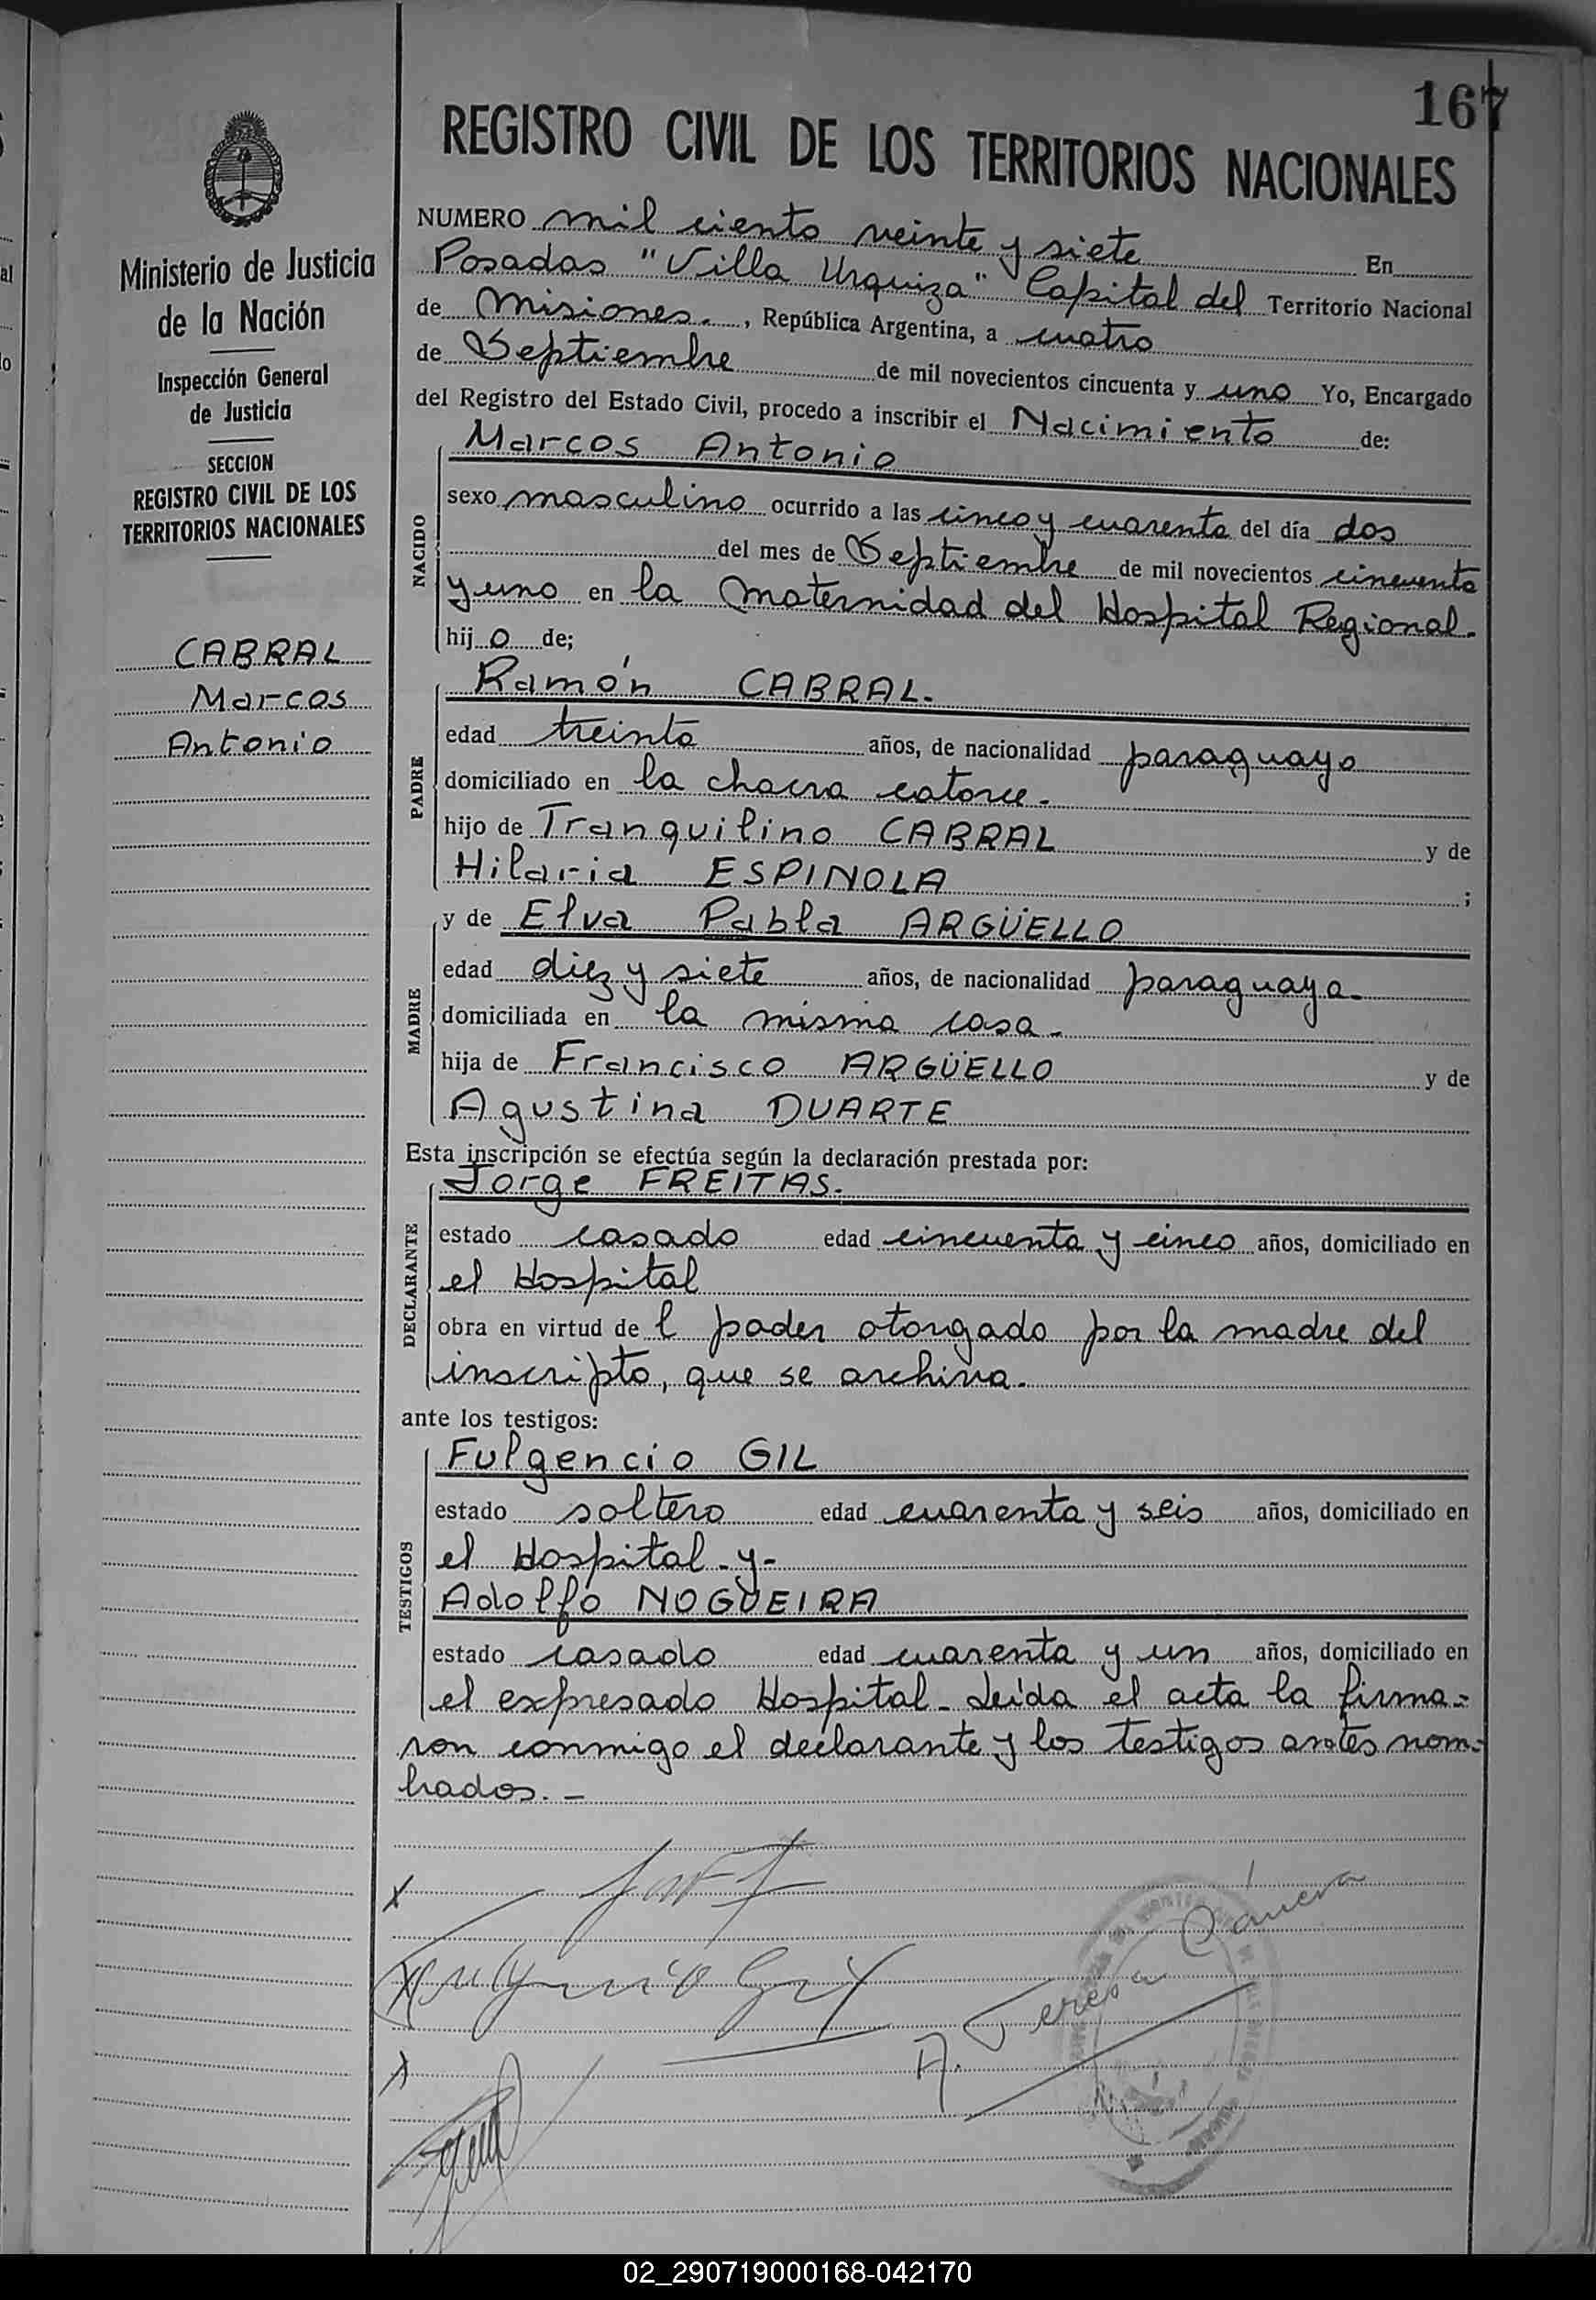 167
REGISTRO CIVIL DE LOS TERRITORIOS NACIONALES
Ministerio de Justicia
de la Nación
Inspección General
de Justicia
SECCION
REGISTRO CIVIL DE LOS
TERRITORIOS NACIONALES
CABRAL
Marcos
Antonio
NUMERO mil ciento veinte y siete En
Posadas "Villa Urquiza" Capital del Territorio Nacional
de Misiones., República Argentina, a cuatro
de Septiembre de mil novecientos cincuenta y uno Yo, Encargado
del Registro del Estado Civil, procedo a inscribir el Nacimiento de:
Marcos Antonio
NACIDO
sexo masculino ocurrido a las cinco y cuarenta del día dos
del mes de Septiembre de mil novecientos cincuenta
y uno en la Maternidad del Hospital Regional.
hijo de;
Ramón CABRAL.
PADRE
edad treinta años, de nacionalidad paraguaya
domiciliado en la chacra catorce.
hijo de Tranquilino CABRAL y de
Hilaria ESPINOLA ;
y de Elva Pabla ARGÜELLO
MADRE
edad diez y siete años, de nacionalidad paraguaya.
domiciliada en la misma casa.
hija de Francisco ARGÜELLO y de
Agustina DUARTE
Esta inscripción se efectúa según la declaración prestada por:
Jorge FREITAS.
DECLARANTE
estado casado edad cincuenta y cinco años, domiciliado en
el Hospital
obra en virtud de l poder otorgado por la madre del
inscripto, que se archiva.
ante los testigos:
Fulgencio GIL
TESTIGOS
estado soltero edad cuarenta y seis años, domiciliado en
el Hospital - y -
Adolfo NOGUEIRA
estado casado edad cuarenta y un años, domiciliado en
el expresado Hospital - Leída el acta la firma=
ron conmigo el declarante y los testigos antes nom=
brados. -
Fulgencio Gil
A. Teresa
02_290719000168-042170